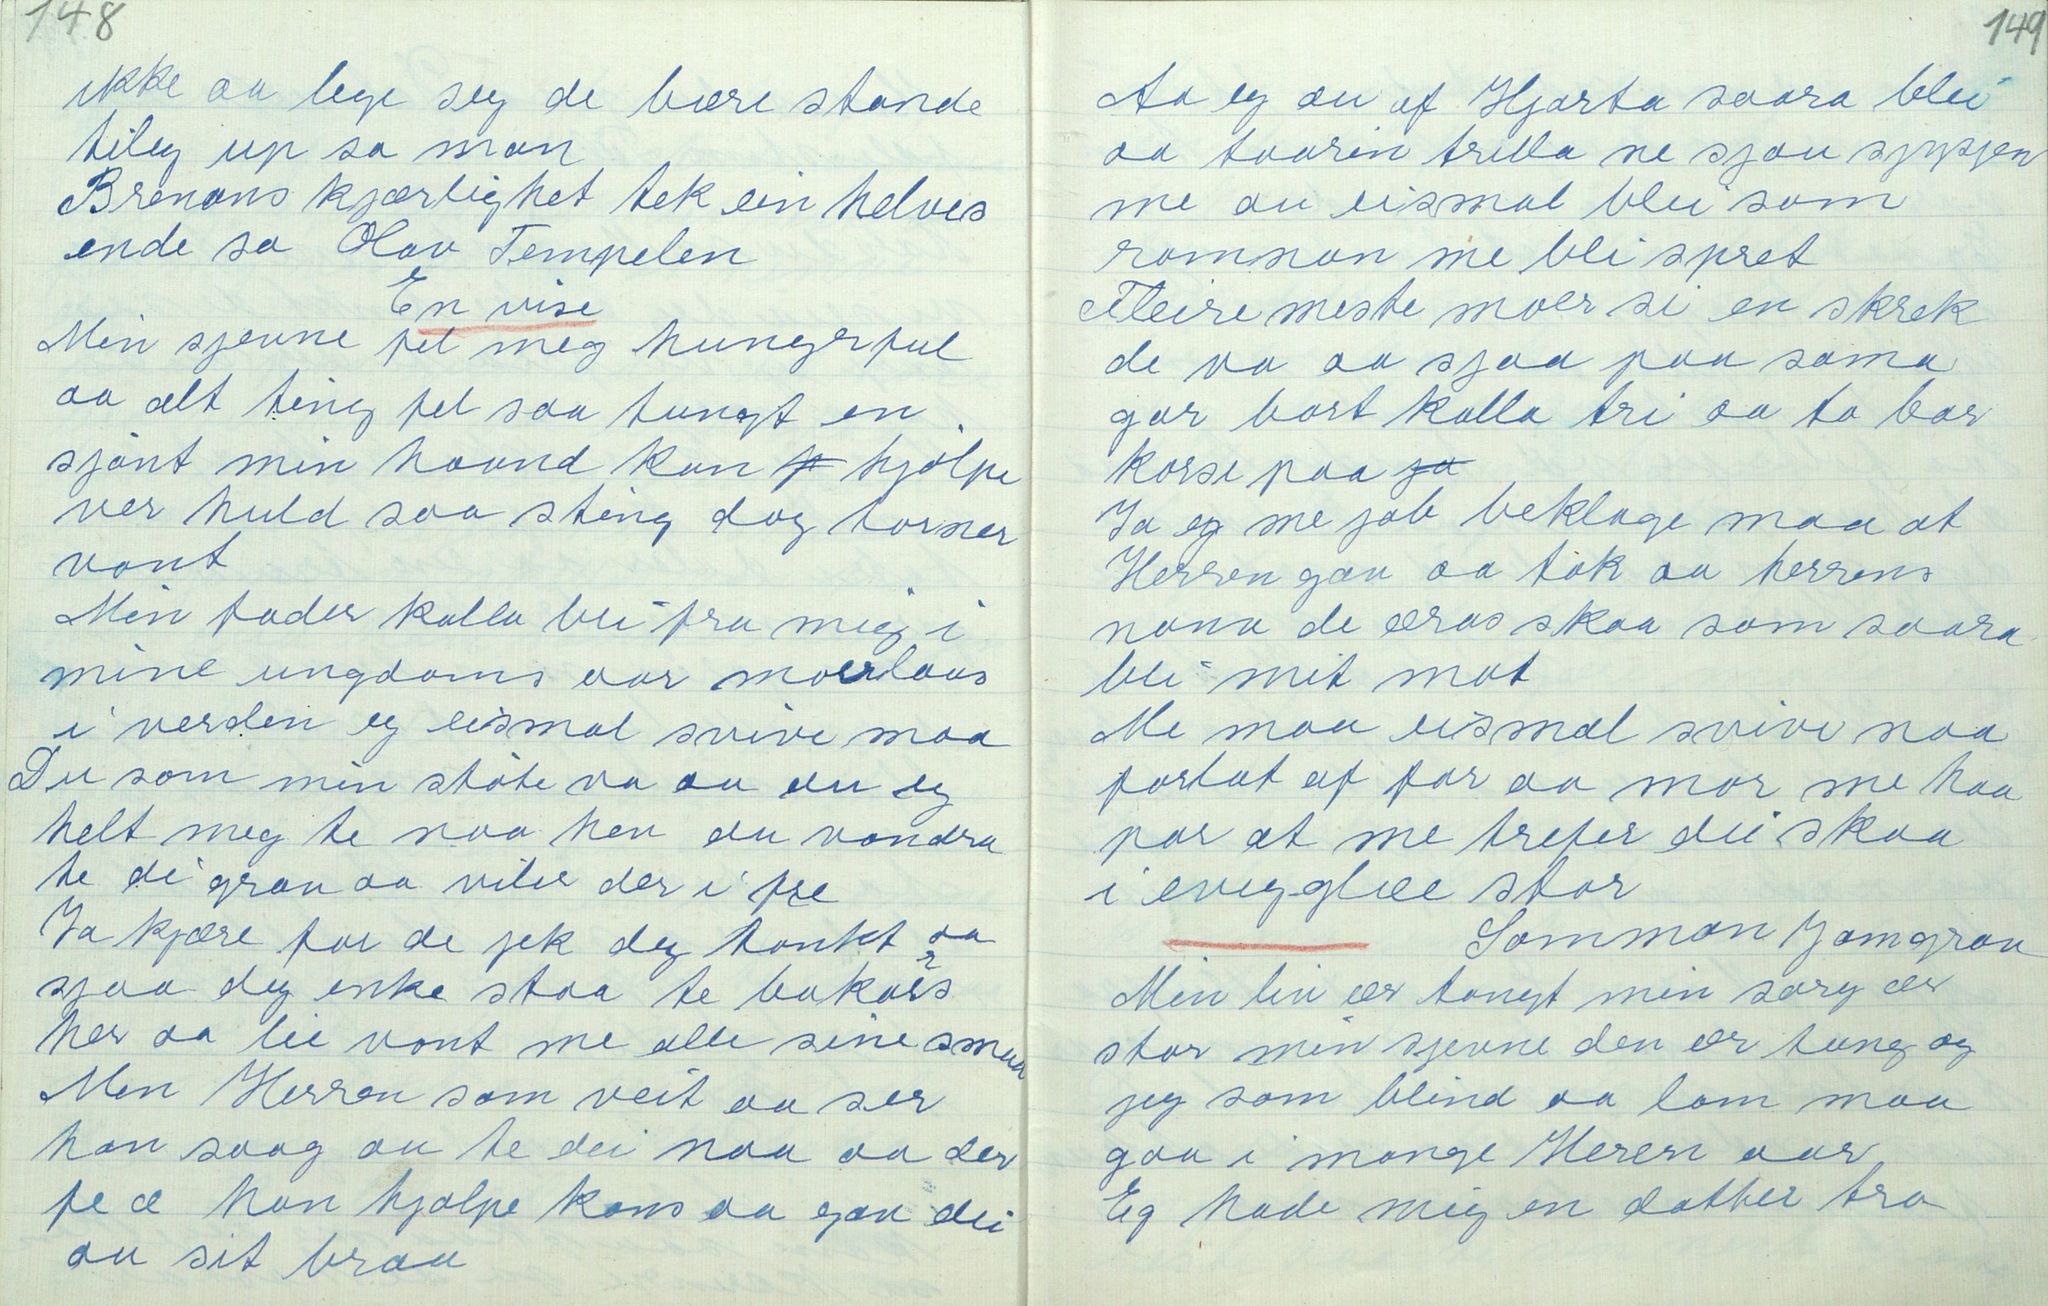 148
ikke aa lege seg de bære stande
tileg up sa man
Brenans kjærlighet tek ein helves
ende sa Olav Tempelen
En vise
Min sjevne fel meg hungrful
aa alt ting fel saa tungt en
sjønt min haand kan hjølpe
ver huld saa sting dog torner
vont
Min fader kalla bli fra mig i
mine ungdoms aar moerlaus
i verden eg eismal svive maa
Du som min støte va aa au eg
helt meg te naa hev du vandra
te di grav aa viler der i fre
Ja kjære far de jek deg tankt aa
sjaa deg enke staa te bakars
her aa lie vont me alle sine smaa
Men Herren som veit aa ser
han saag au te dei naa aa der
fe æ han hjølpe kans aa gav dei
au sit brau
149
Aa eg au af Hjarta saara blei
aa taarin trilla ne sjau sysjen
me au eismal blei som
ramnan me bli spret
Fleire meste moer si en skrek
de va aa sjaa paa sama
gar bort kalla tri aa to bar
korsi paa ja
Ja eg me job beklage maa at
Herren gav aa tok aa herrens
navn de æras skaa som saara
bli mit mot
Me maa eismal svive naa
forlat af far aa mor me haa
par at me trefer dei skaa
i evig glæe stor
Sommon Jamgrav
Min liv ær tongt min sorg ær
stor min sjevne den ær tung og
jeg som blind aa lam maa
gaa i mange Heren aar
Eg hade mig en dotter tro